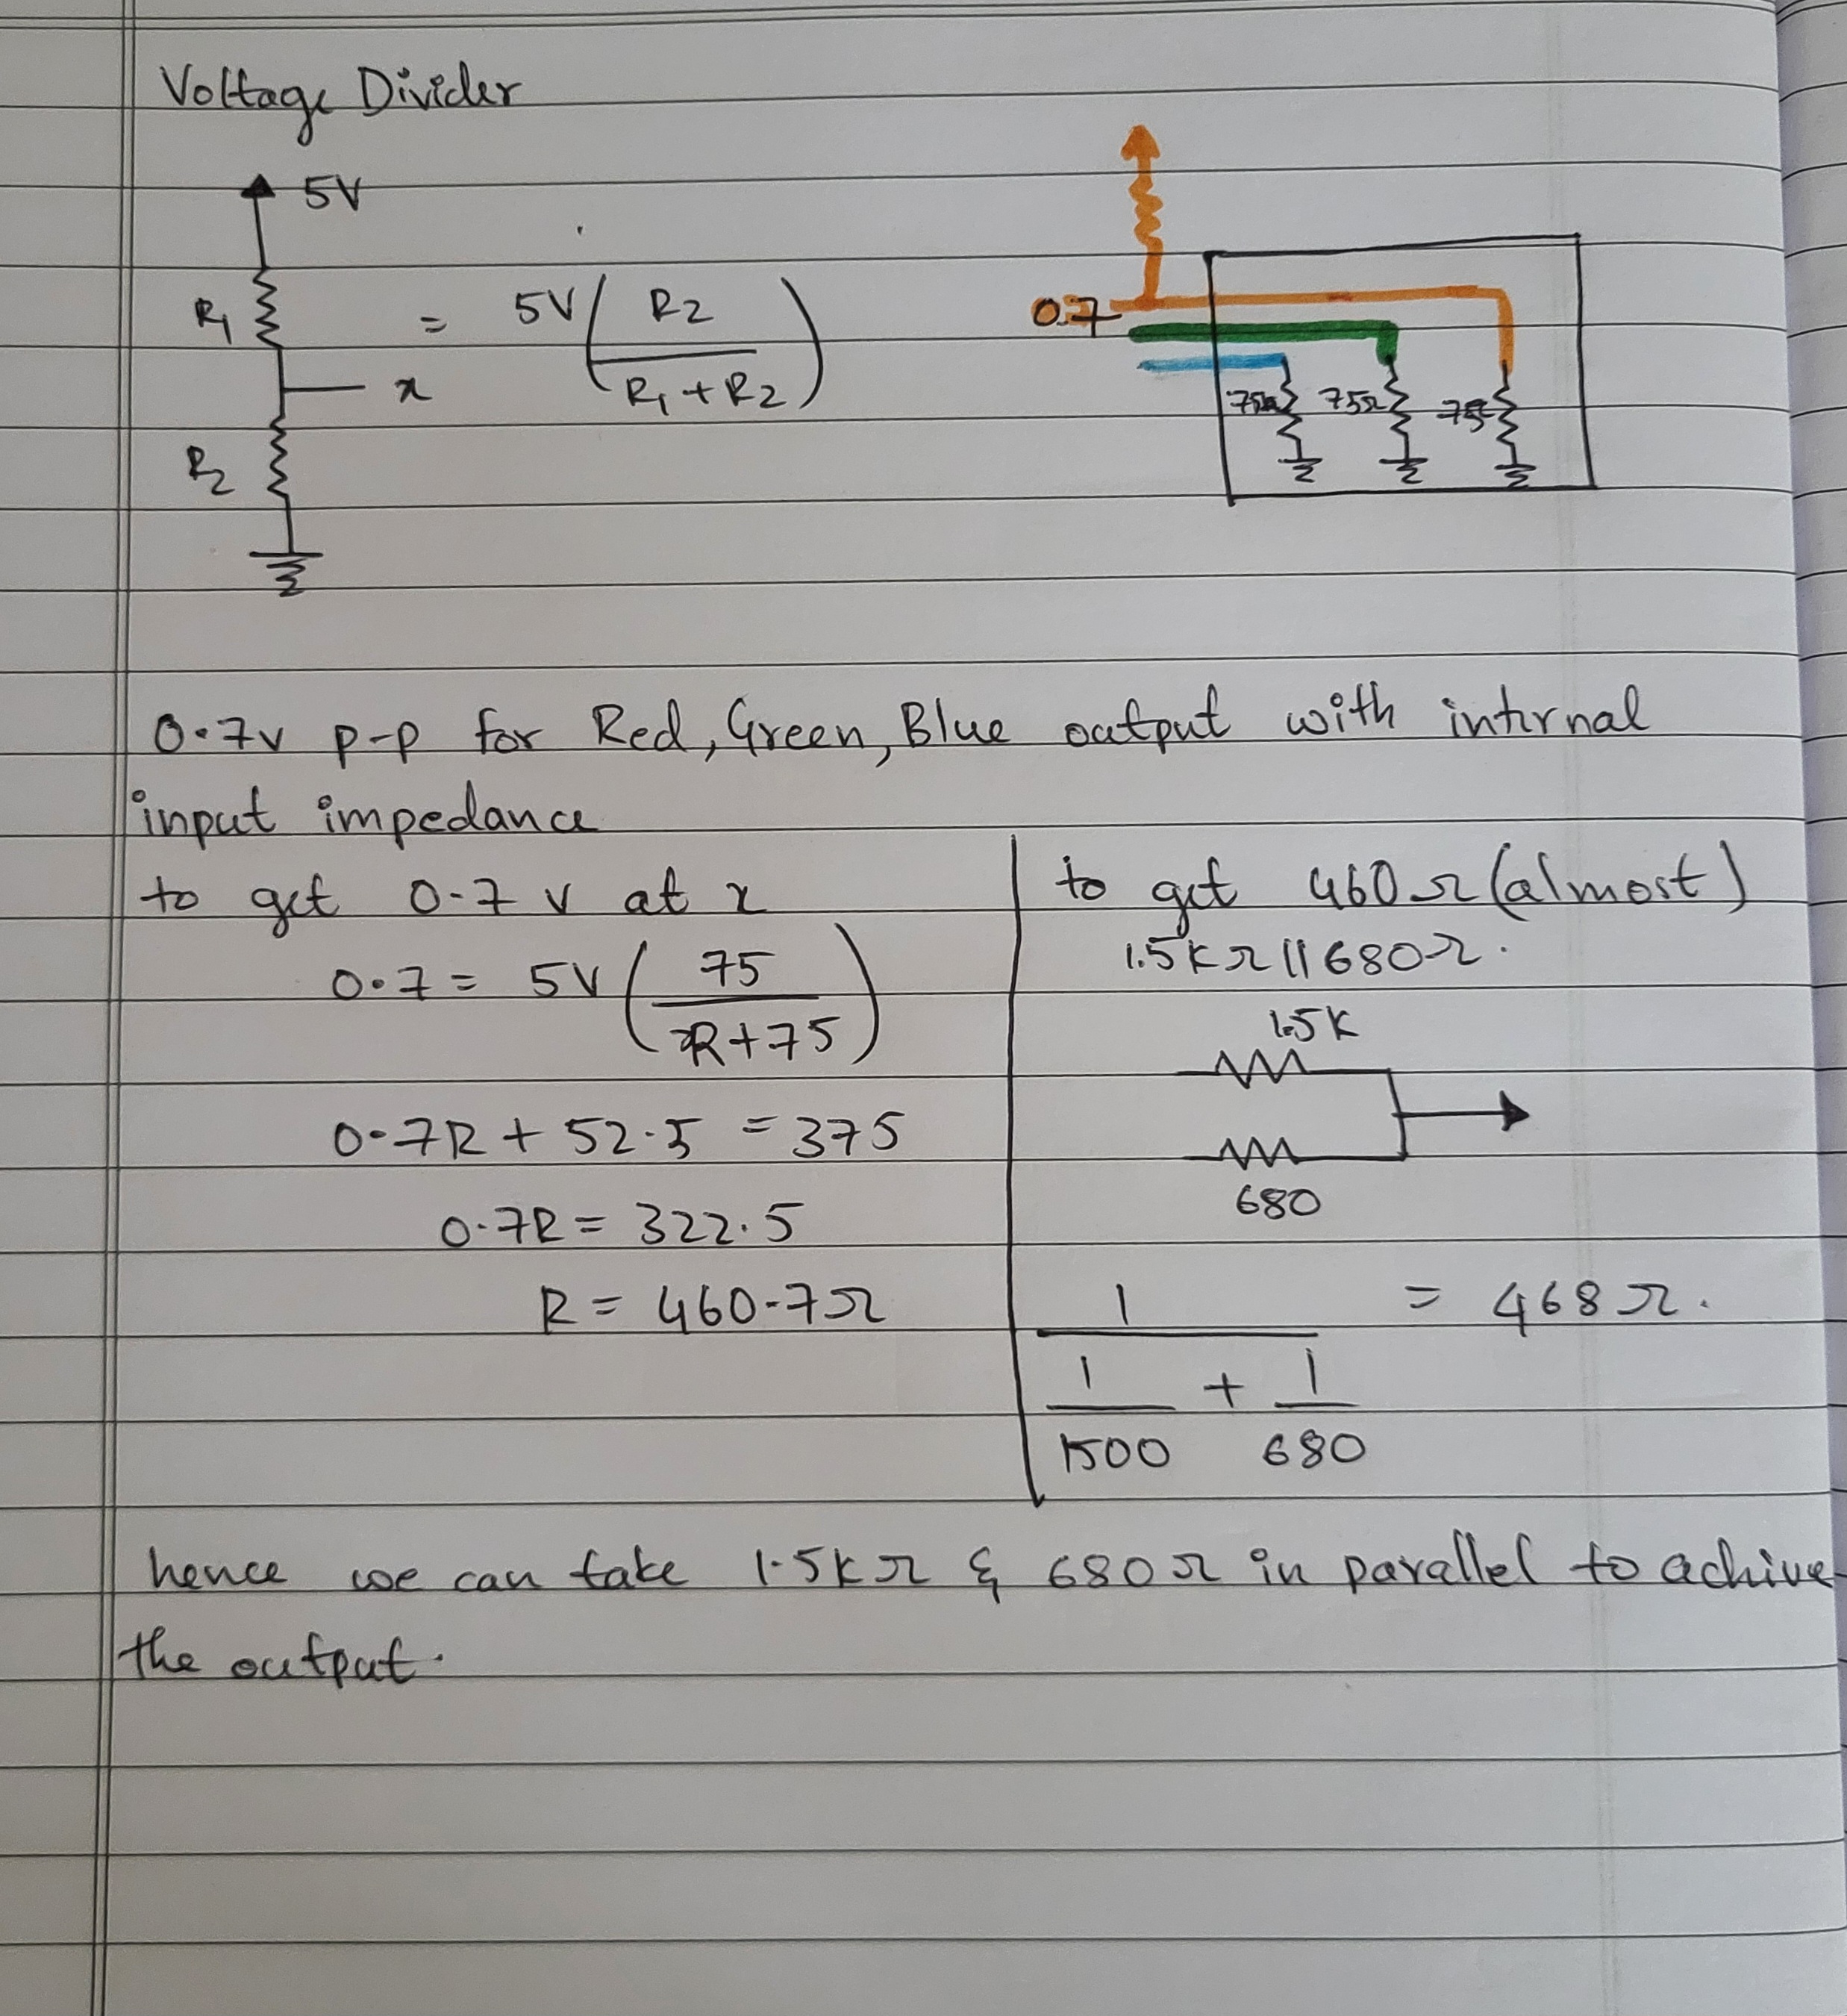 Voltage Divider
5V
R1
x = 5V ( R2 / R1 + R2 )
R2
0.7
75Ω 75Ω 75
0.7v p-p for Red, Green, Blue output with internal
input impedance
to get 0.7 v at x
0.7 = 5V ( 75 / R+75 )
0.7R + 52.5 = 375
0.7R = 322.5
R = 460.7Ω
to get 460Ω (almost)
1.5KΩ || 680Ω.
1.5K
680
1 / ( 1/1500 + 1/680 ) = 468Ω.
hence we can take 1.5kΩ & 680Ω in parallel to achive
the output.